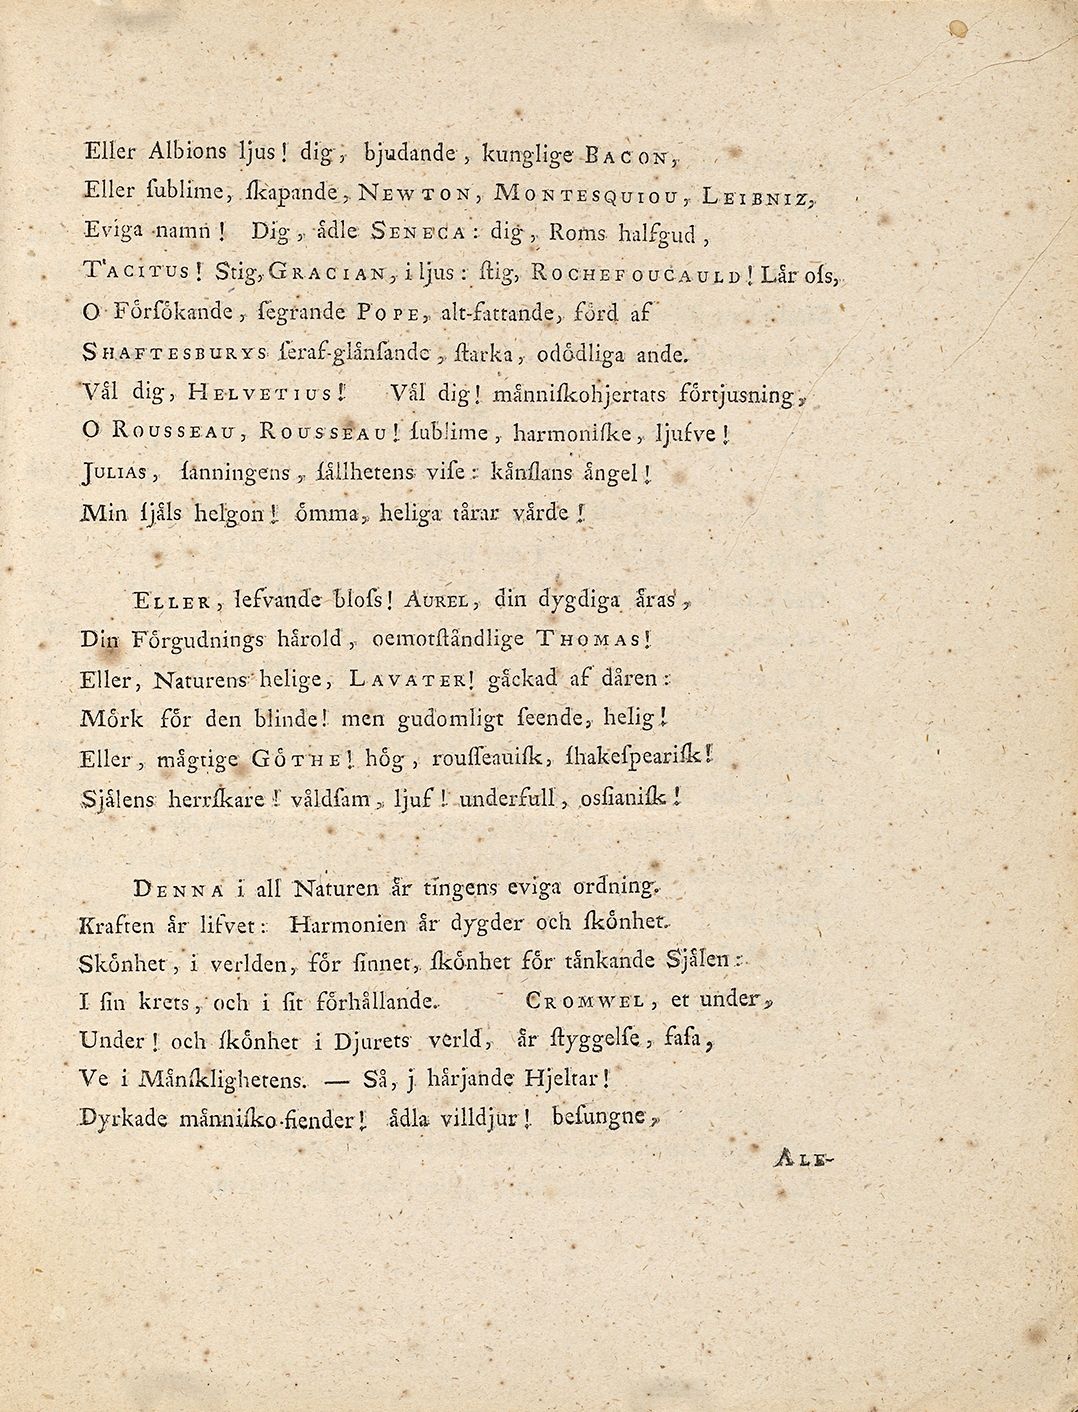 Eller Albions ljus! dig, bjudande, kunglige BACON,
Eller ſublime, ſkapande, NEWTON, MONTESQUIOU, LEIBNIZ,
Eviga namn! Dig, ådle SENECA: dig, Roms halfgud,
TACITUS! Stig, GRACIAN, i ljus: ſtig, ROCHEFOUCAULD! Lår oſs,
O Förſökande, ſegrande POPE, alt-fattande, förd af
SHAFTESBURYS ſeraf-glånſande, ſtarka, odödliga ande.
Vål dig, HELVETIUS! Vål dig! månniſkohjertats förtjusning,
O ROUSSEAU, ROUSSEAU! ſublime, harmoniſke, ljufve!
JULIAS, ſanningens, ſållhetens viſe: kånſlans ångel!
Min ſjåls helgon! ömma, heliga tårar vårde!
ELLER, lefvande bloſs! AUREL, din dygdiga åras,
Din Förgudnings hårold, oemotſtåndlige THOMAS!
Eller, Naturens helige, LAVATER! gåckad af dåren:
Mörk för den blinde! men gudomligt ſeende, helig!
Eller, mågtige GÖTHE! hög, rouſſeauiſk, ſhakeſpeariſk!
Sjålens herrſkare! våldſam, ljuf! underfull, osſianiſk!
DENNA i all Naturen år tingens eviga ordning.
Kraften år lifvet: Harmonien år dygder och ſkönhet.
Skönhet, i verlden, för ſinnet, ſkönhet för tånkande Sjålen:
I ſin krets, och i ſit förhållande. CROMWEL, et under,
Under! och ſkönhet i Djurets verld, år ſtyggelſe, faſa,
Ve i Månſklighetens. — Så, j hårjande Hjeltar!
Dyrkade månniſko-fiender! ådla villdjur! beſungne,
ALE-